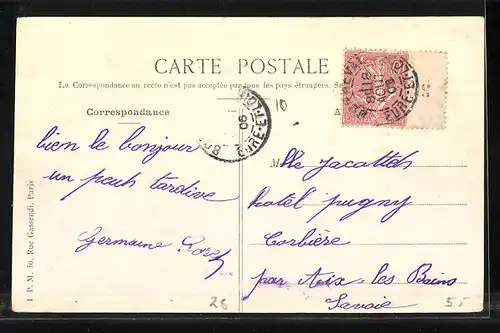 CARTE POSTALE
La Correspondance au recto n'est pas acceptée par tous les pays étrangers. Se
Correspondance
A
EURE-ET-LOIR
08
EURE-ET-LOIR
08
10
bien le bonjour
un peuh tardive
Germaine
M
lle Jacottet
hotel pugny
Corbière
par Aix les Bains
Savoie
1 P. M. 36, Rue Gassendi, Paris
28